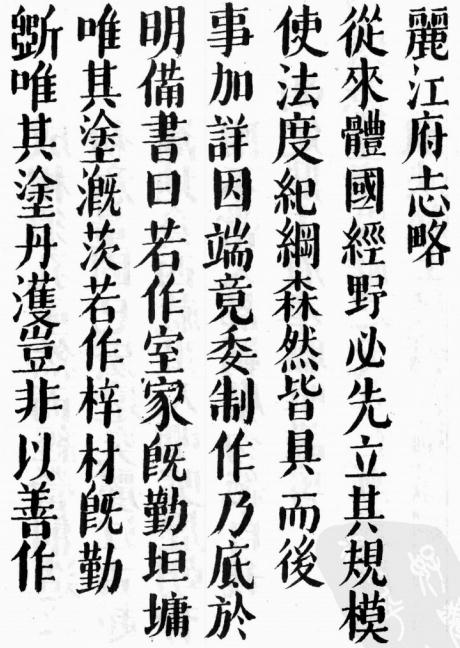 麗江府志略
從來體國經野必先立其規模
使法度紀綱森然皆具而後
事加詳因端竟委制作乃底於
明備書曰若作室家旣勤垣墉
唯其塗漑茨若作梓材旣勤
斵唯其塗丹濩豈非以善作